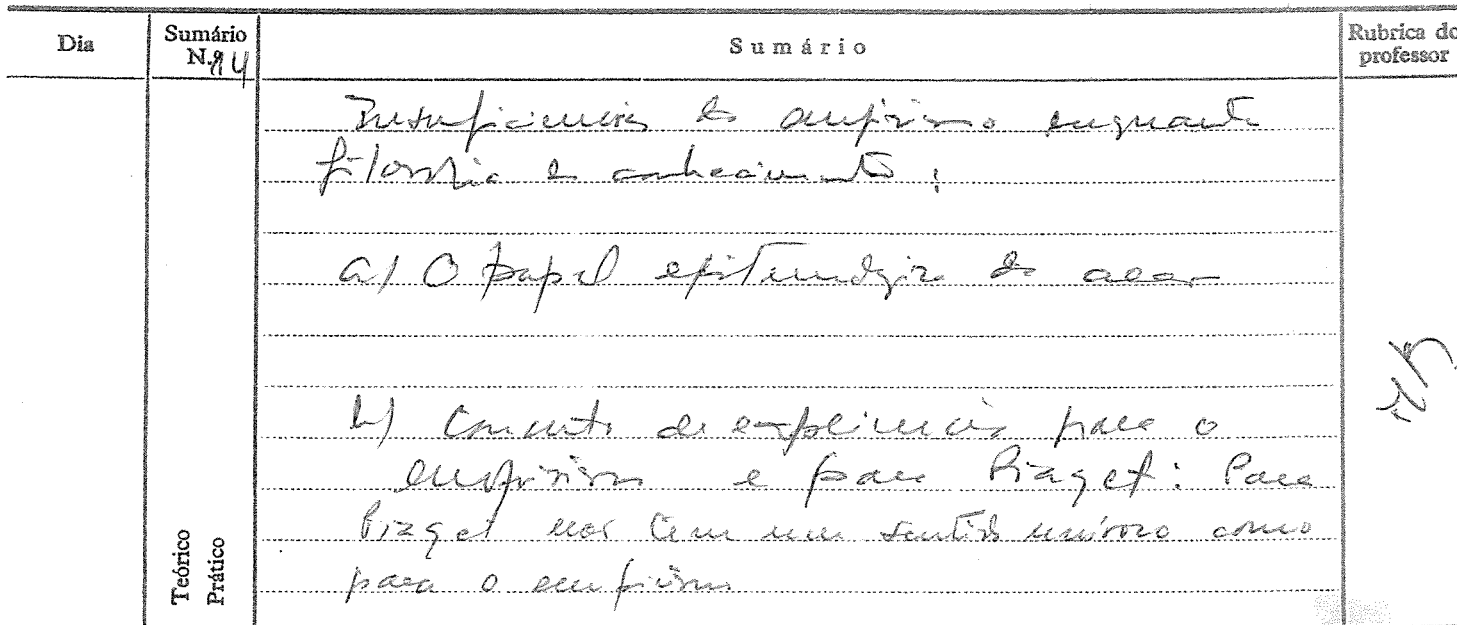 Dia
Sumário
N.º 14
Sumário
Rubrica do
professor
Insuficiências do empirismo enquanto
filosofia do conhecimento:
a) O papel epistemológico da acção
b) Conceito de experiência para o
empirismo e para Piaget: Para
Piaget não tem um sentido unívoco como
para o empirismo
Teórico
Prático